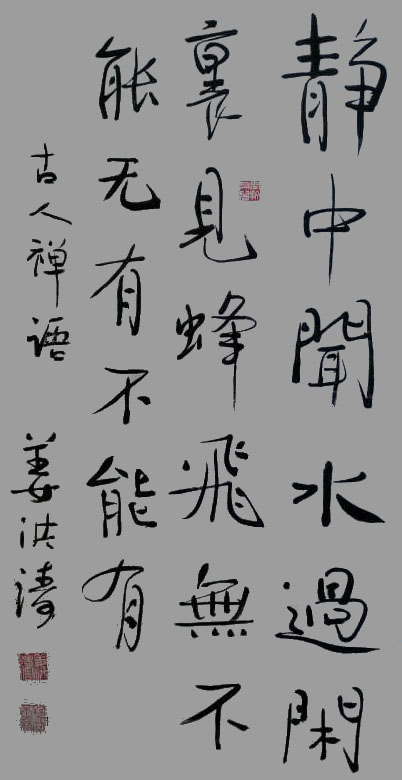 静中聞水過閑
裏見蜂飛無不
能无有不能有
古人禅语 姜洪涛